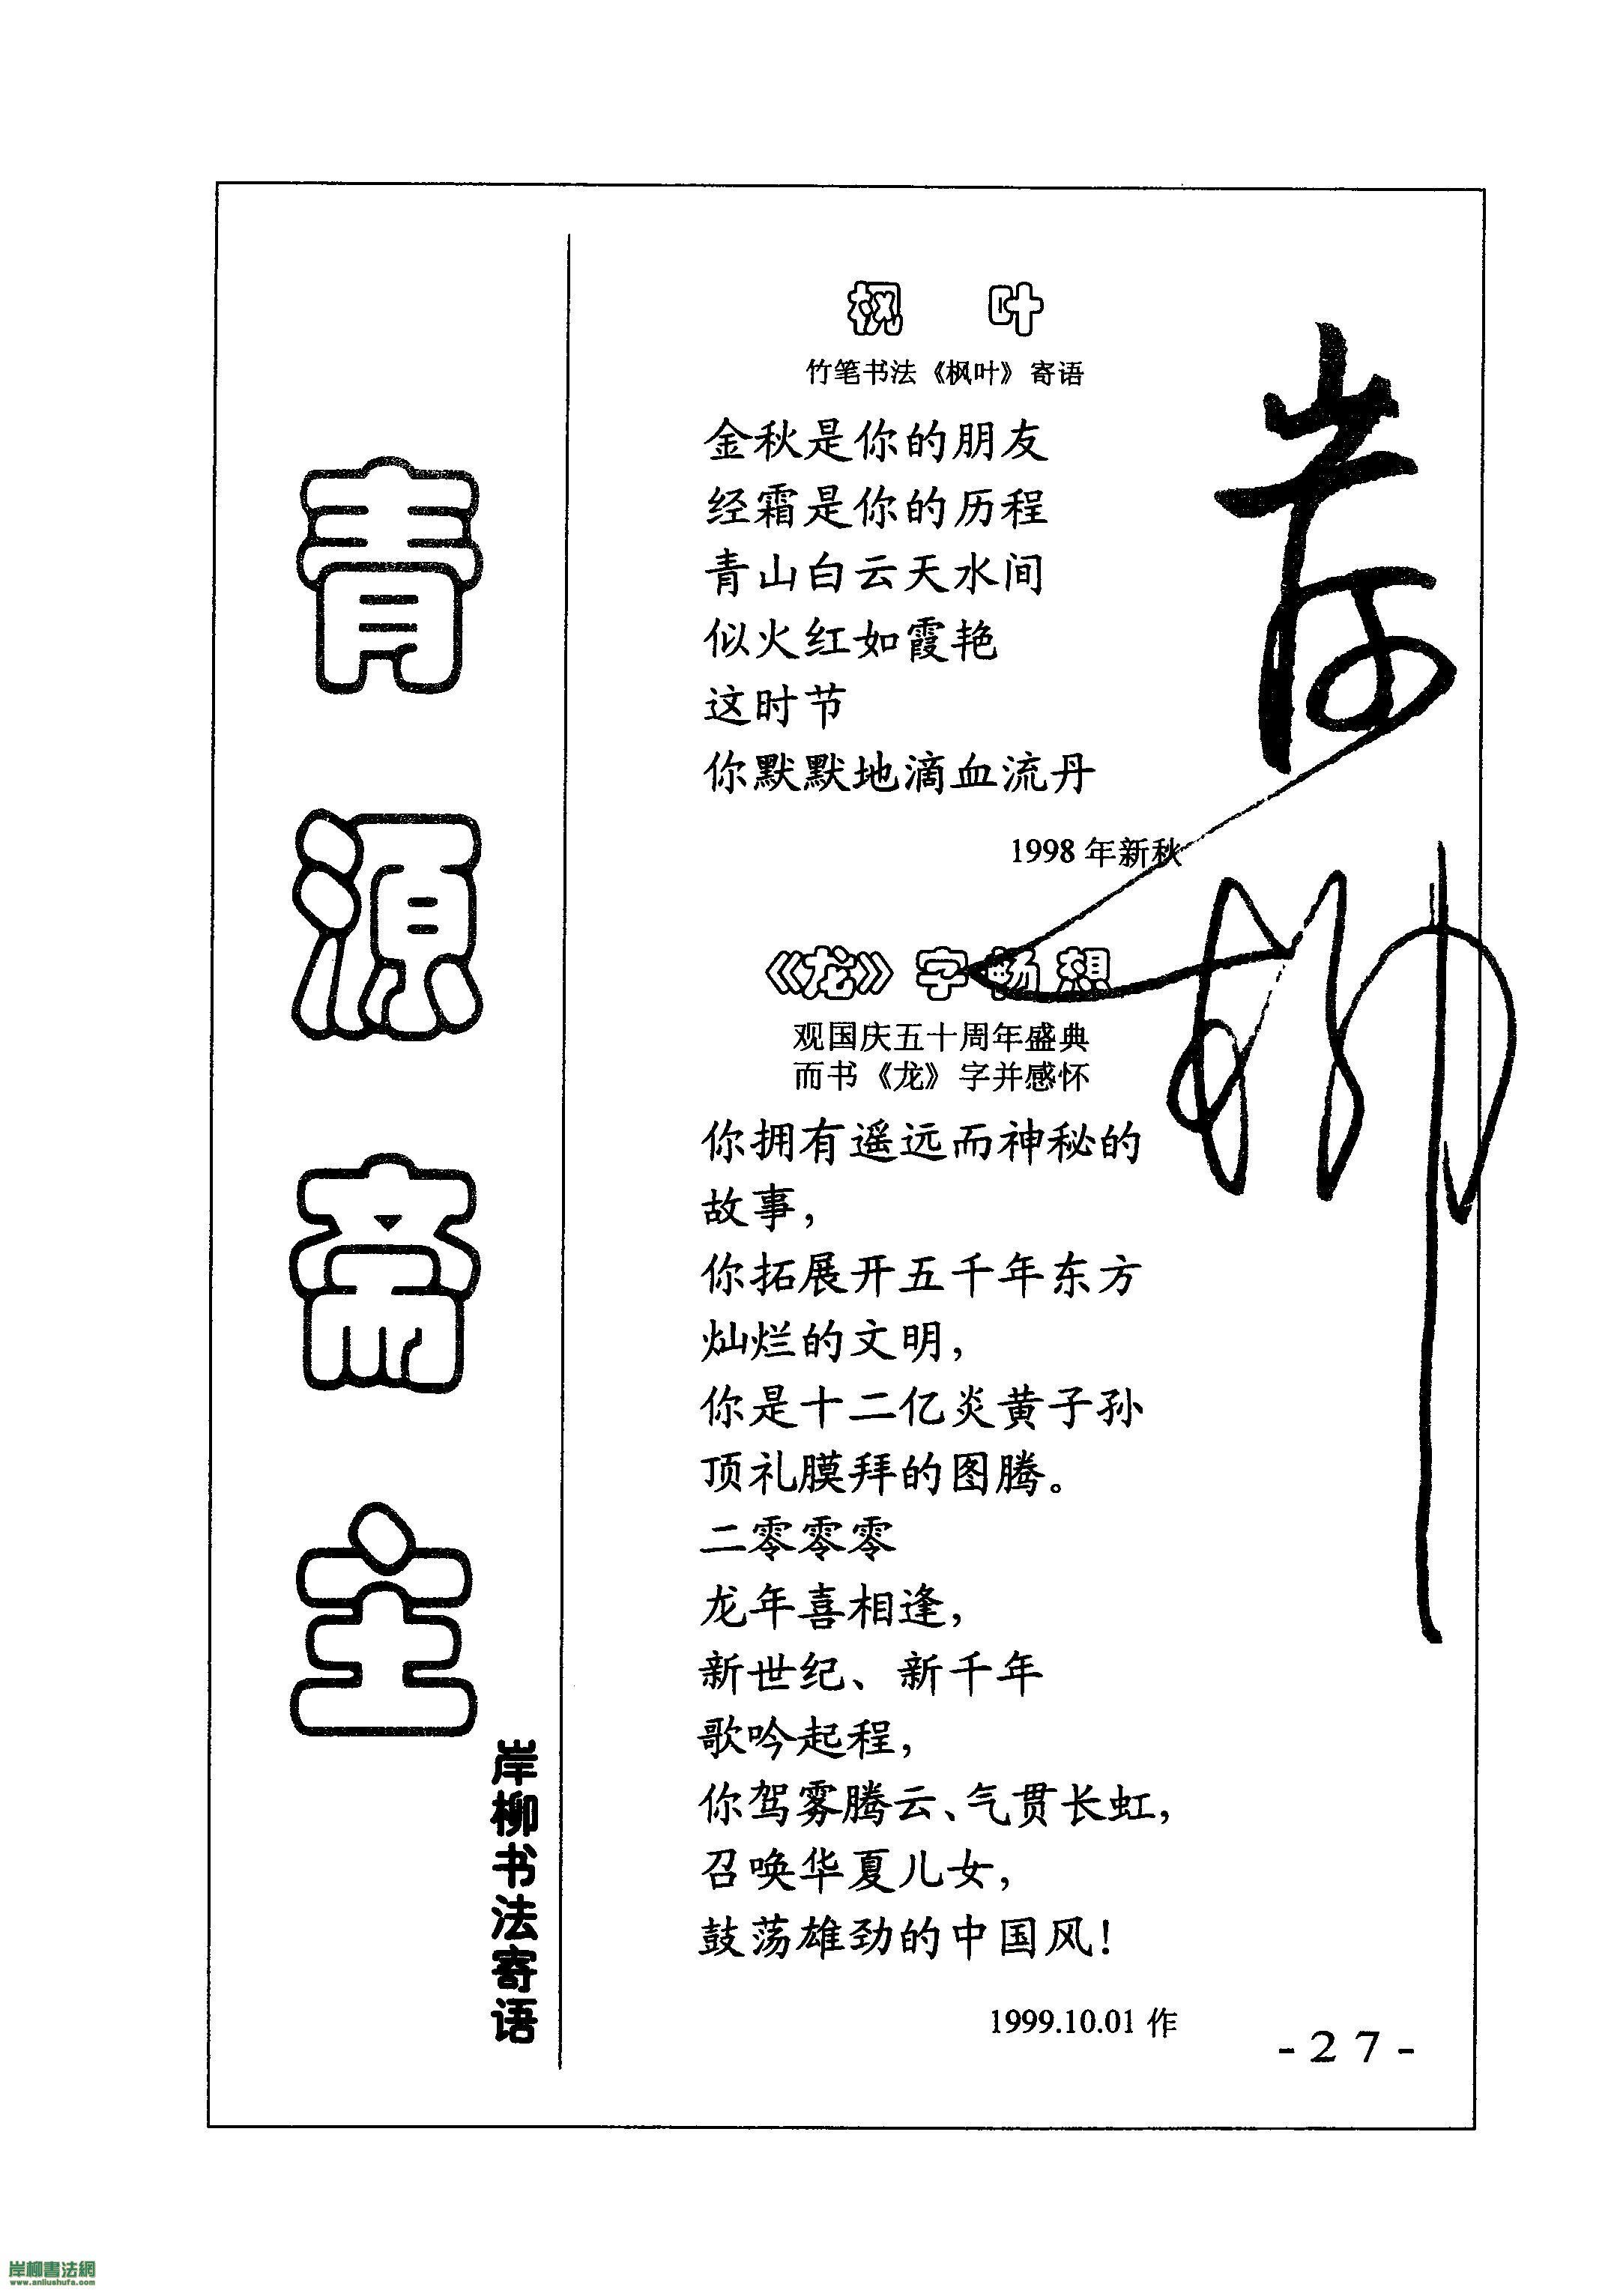 青源斋主
岸柳书法寄语
枫 叶
竹笔书法《枫叶》寄语
金秋是你的朋友
经霜是你的历程
青山白云天水间
似火红如霞艳
这时节
你默默地滴血流丹
1998 年新秋
《龙》字畅想
观国庆五十周年盛典
而书《龙》字并感怀
你拥有遥远而神秘的
故事，
你拓展开五千年东方
灿烂的文明，
你是十二亿炎黄子孙
顶礼膜拜的图腾。
二零零零
龙年喜相逢，
新世纪、新千年
歌吟起程，
你驾雾腾云、气贯长虹，
召唤华夏儿女，
鼓荡雄劲的中国风！
1999.10.01 作
岸柳
-27-
岸柳書法網
www.anliushufa.com